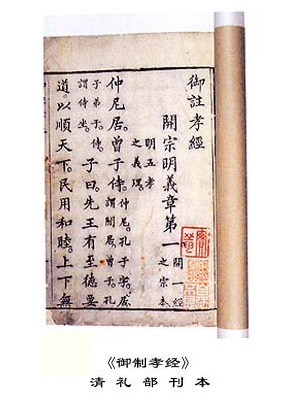 御註孝經
開宗明義章第一
開一經
之宗本
明五孝
之義理
仲尼居。曾子侍。
仲尼。孔子字。居
謂閒居。曾子。孔
子弟子。侍。
謂侍坐。
子曰。先王有至德要
道。以順天下。民用和睦。上下無
《御制孝经》
清礼部刊本